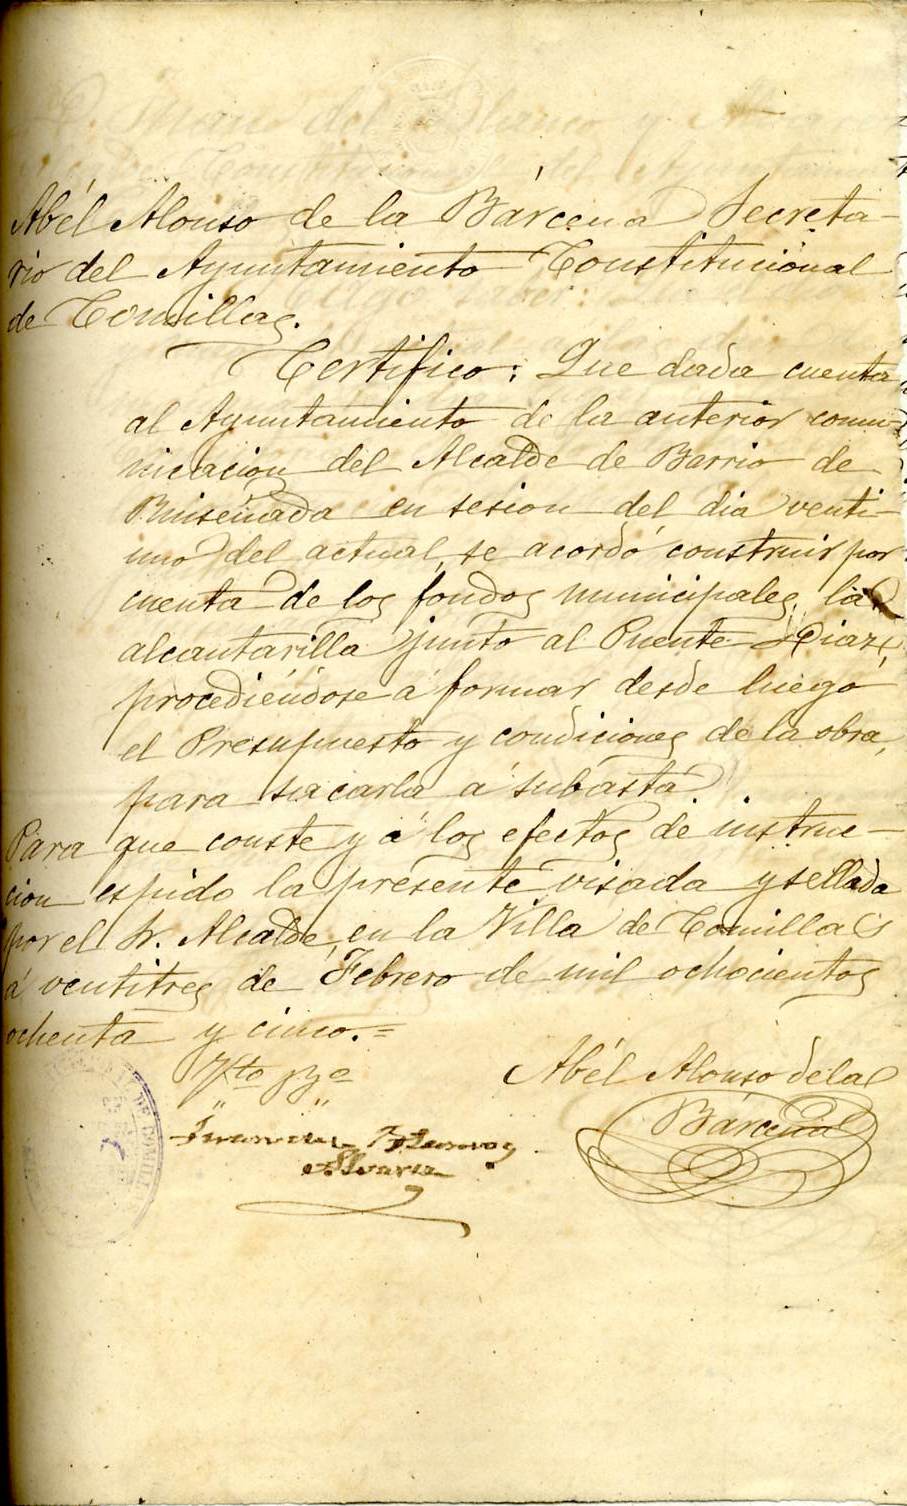 Abél Alonso de la Bárcena Secreta-
rio del Ayuntamiento Constitucional
de Comillas.
Certifico: Que dada cuenta
al Ayuntamiento de la anterior comu-
nicacion del Alcalde de Barrio de
Ruiseñada en sesion del dia venti-
uno del actual, se acordó construir por
cuenta de los fondos municipales, la
alcantarilla junto al Puente Diaz,
procediéndose á formar desde luego
el Presupuesto y condiciones de la obra,
para sacarla á subasta
Para que conste y á los efectos de instruc-
cion espido la presente visada y sellada
por el Sr. Alcalde, en la Villa de Comillas
á ventitres de Febrero de mil ochocientos
ochenta y cinco.=
Vto Bo
Abél Alonso de la
Bárcena